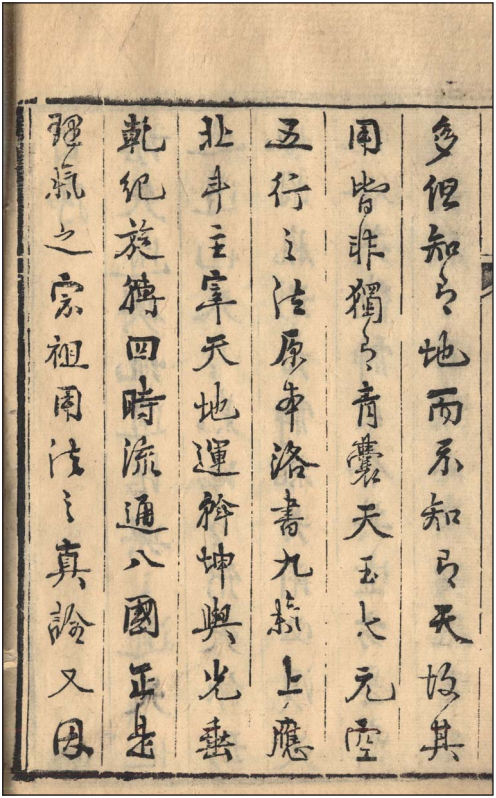 多但知有地而不知有天故其
用皆非獨有青囊天玉大元空
五行之法原本洛書九氣上應
北斗主宰天地運斡坤輿光垂
乾紀旋轉四時流通八國正是
理氣之宗祖用法之真詮又因